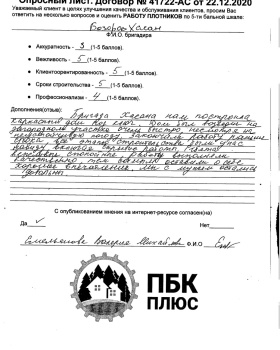 Опросный лист. Договор № 41722-АС от 22.12.2020
Уважаемый клиент в целях улучшения качества и обслуживания клиентов, просим Вас
ответить на несколько вопросов и оценить РАБОТУ ПЛОТНИКОВ по 5-ти бальной шкале:
Хасан
Ф.И.О. бригадира
• Аккуратность - 3 (1-5 баллов).
• Вежливость - 5 (1-5 баллов).
• Клиентоориентированность - 5 (1-5 баллов)
• Сроки строительства - 5 (1-5 баллов).
• Профессионализм - 4 (1-5 баллов).
Дополнения(отзыв): Бригада Хасана нам построила
каркасный дом под ключ. Дом был возведен на
загородном участке очень быстро, несмотря на
погоду. Закончили работу раньше
срока. все этапы строительства были у нас
работы. Ребята
работу выполнили
качественно, тем самым оставили о себе
хорошее впечатление. Мы с мужем остались
довольны.
С опубликованием мнения на интернет-ресурсе согласен(на)
Да ✓ Нет
Емельянова Валерия Михайловна Ф.И.О
ПБК
ПЛЮС